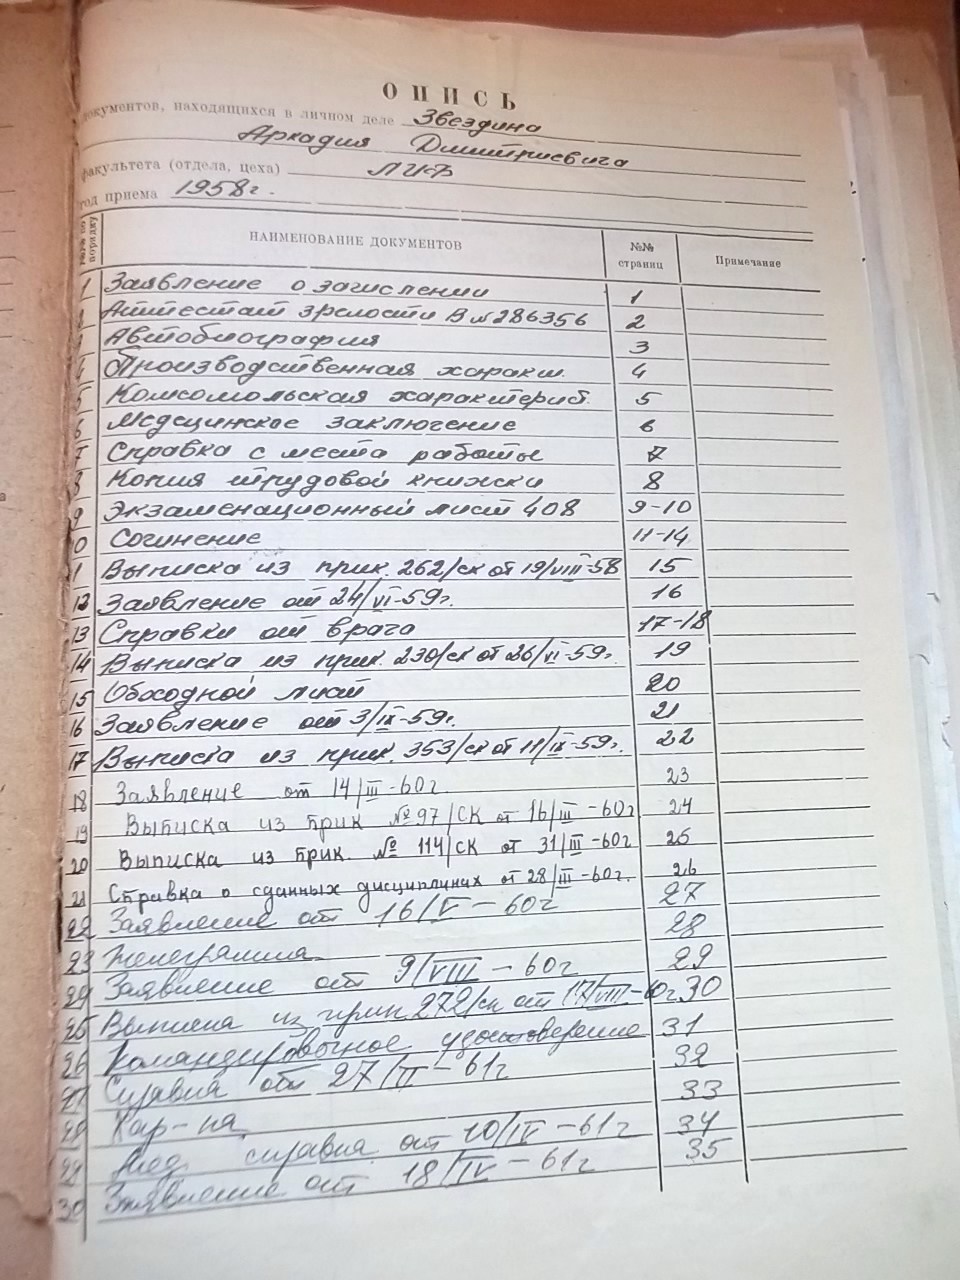 ОПИСЬ
документов, находящихся в личном деле Звездина
Аркадия Дмитриевича
факультета (отдела, цеха) ЛИФ
год приема 1958г.
№№ по порядку НАИМЕНОВАНИЕ ДОКУМЕНТОВ №№ страниц Примечание
1 Заявление о зачислении 1
2 Аттестат зрелости В №286356 2
3 Автобиография 3
4 Производственная характ. 4
5 Комсомольская характерист. 5
6 Медецинское заключение 6
7 Справка с места работы 7
8 Копия трудовой книжки 8
9 Экзаменационный лист 408 9-10
0 Сочинение 11-14
1 Выписка из прик. 262/ск от 19/VIII-58 15
12 Заявление от 24/VI-59г. 16
13 Справки от врача 17-18
14 Выписка из прик. 230/ск от 26/VI-59г. 19
15 Обходной лист 20
16 Заявление от 3/IX-59г. 21
17 Выписка из прик. 353/ск от 11/IX-59г. 22
18 Заявление от 14/III-60г. 23
19 Выписка из прик №97/СК от 16/III-60г 24
20 Выписка из прик. № 114/СК от 31/III-60г 25
21 Справка о сданных дисциплинах от 28/III-60г. 26
22 Заявление от 16/V-60г 27
23 Телеграмма 28
24 Заявление от 9/VIII-60г 29
25 Выписка из прик 272/ск от 17/VIII-60г 30
26 Командировочное удостоверение 31
27 Справка от 27/II-61г 32
28 Хар-ка 33
29 Мед. справка от 10/IV-61г 34
30 Заявление от 18/IV-61г 35